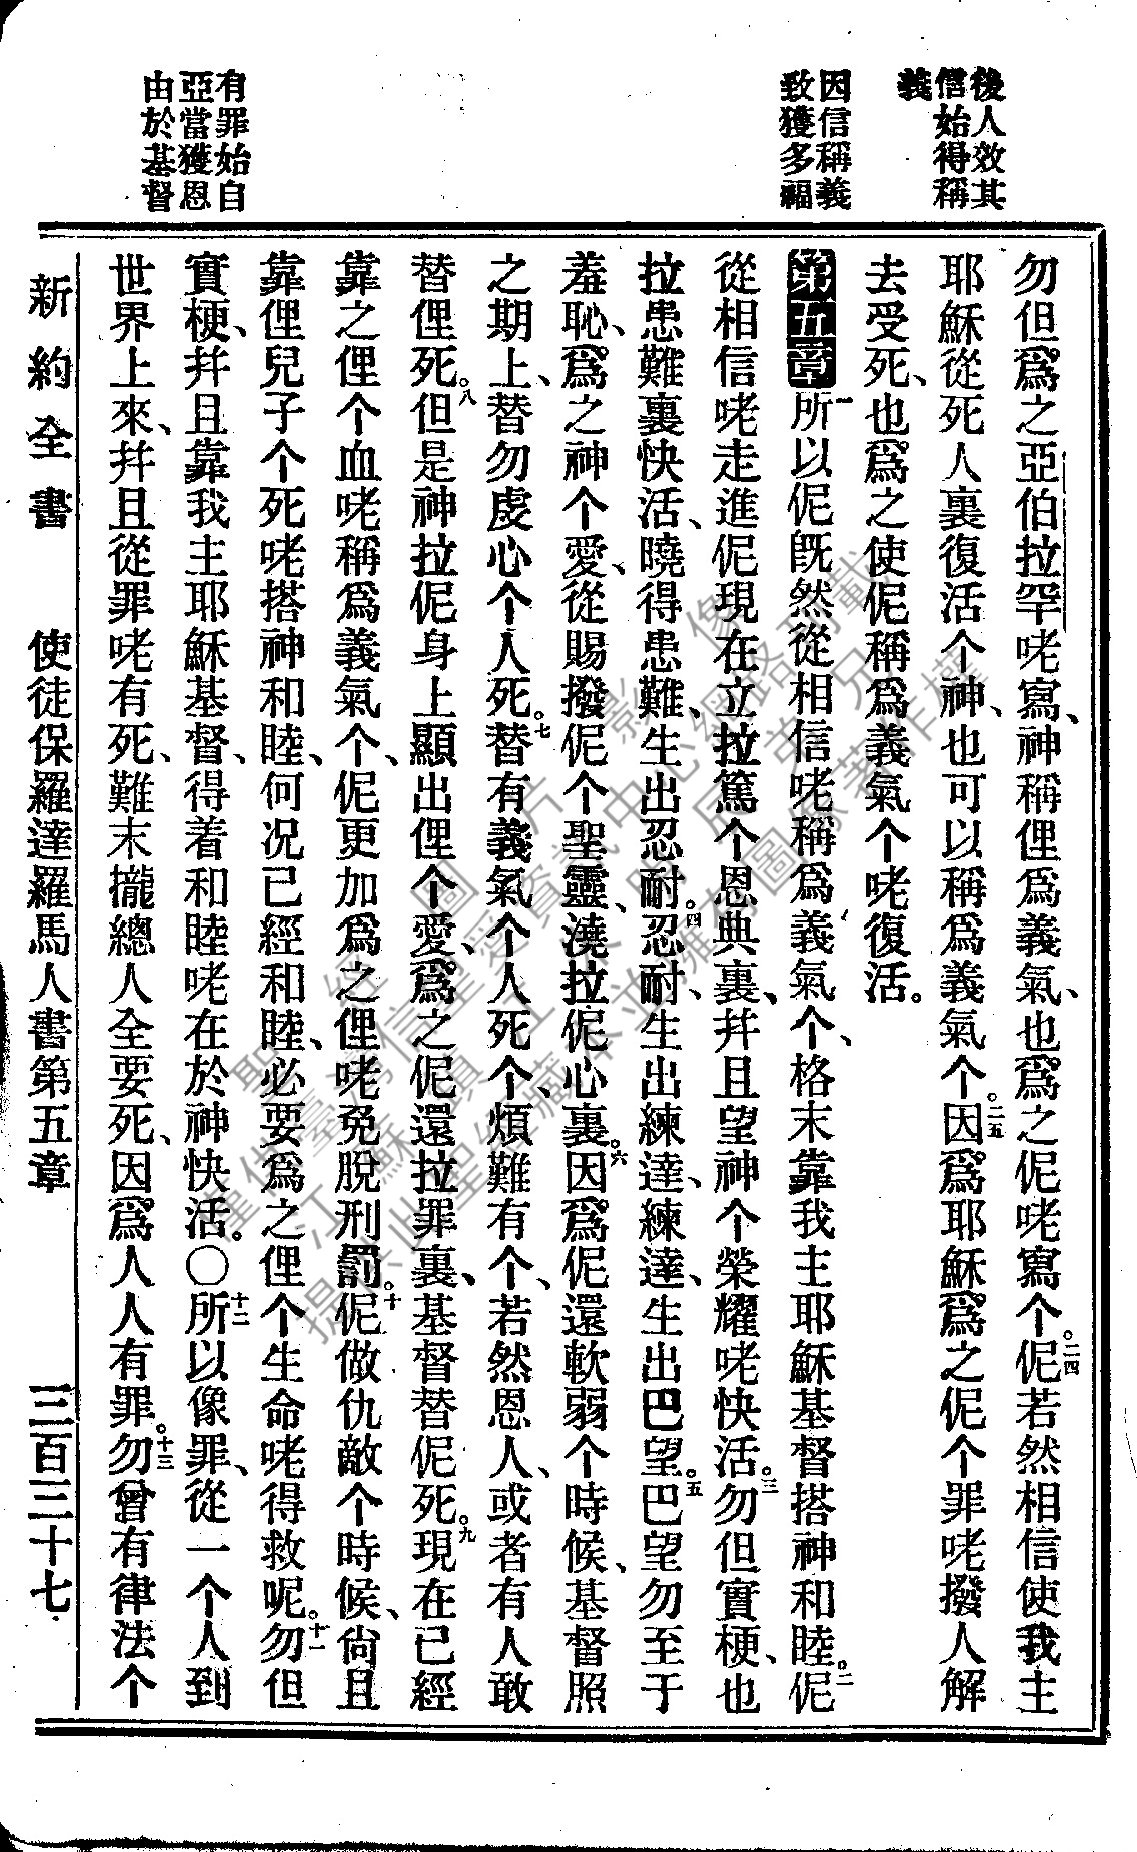 後人效其
信始得稱
義
因信稱義
致獲多福
有罪始自
亞當獲恩
由於基督
勿但爲之亞伯拉罕咾寫、神稱俚爲義氣、也爲之伲咾寫个。二四伲若然相信使我主
耶穌從死人裏復活个神、也可以稱爲義氣个。二五因爲耶穌爲之伲个罪咾撥人解
去受死、也爲之使伲稱爲義氣个咾復活。
第五章 一所以伲旣然從相信咾稱爲義氣个、格末靠我主耶穌基督搭神和睦。二伲
從相信咾走進伲現在立拉篤个恩典裏、幷且望神个榮耀咾快活。三勿但實梗、也
拉患難裏快活、曉得患難、生出忍耐。四忍耐、生出練達、練達、生出巴望。五巴望勿至于
羞恥、爲之神个愛、從賜撥伲个聖靈、澆拉伲心裏。六因爲伲還軟弱个時候、基督照
之期上、替勿虔心个人死。七替有義氣个人死个、煩難有个、若然恩人、或者有人敢
替俚死。八但是神拉伲身上顯出俚个愛、爲之伲還拉罪裏、基督替伲死。九現在已經
靠之俚个血咾稱爲義氣个、伲更加爲之俚咾免脫刑罰。十伲做仇敵个時候、尙且
靠俚兒子个死咾搭神和睦、何况已經和睦、必要爲之俚个生命咾得救呢。十一勿但
實梗、幷且靠我主耶穌基督、得着和睦咾在於神快活。〇十二所以像罪、從一个人到
世界上來、幷且從罪咾有死、難末攏總人全要死、因爲人人有罪。十三勿曾有律法个
新約全書 使徒保羅達羅馬人書第五章 三百三十七
聖經圖片影像
信望愛資訊中心網路刊載